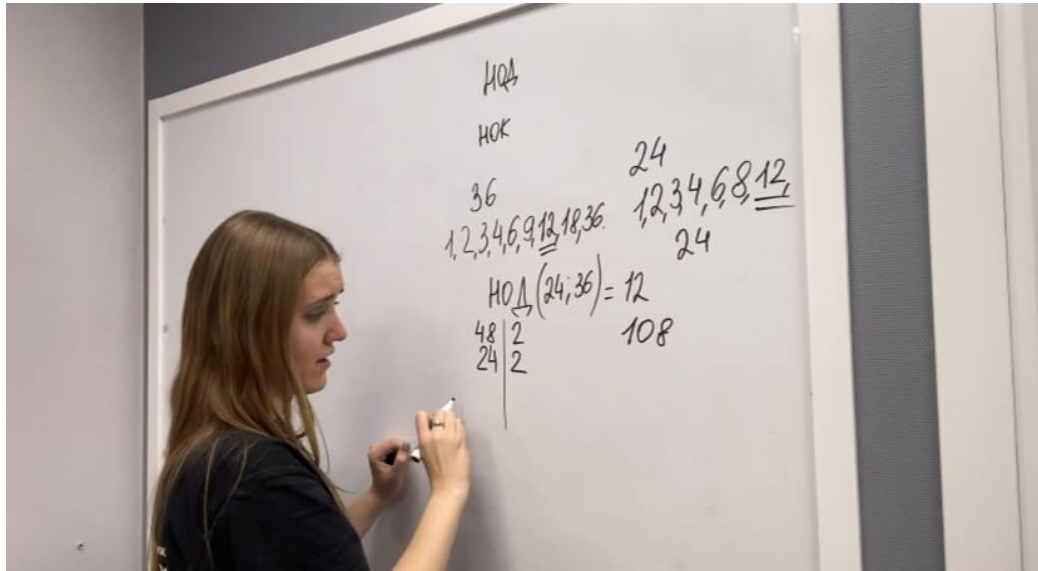 НОД
НОК
36
1,2,3,4,6,9,12,18,36.
24
1,2,3,4,6,8,12,
24
НОД(24;36)=12
48|2
24|2
108